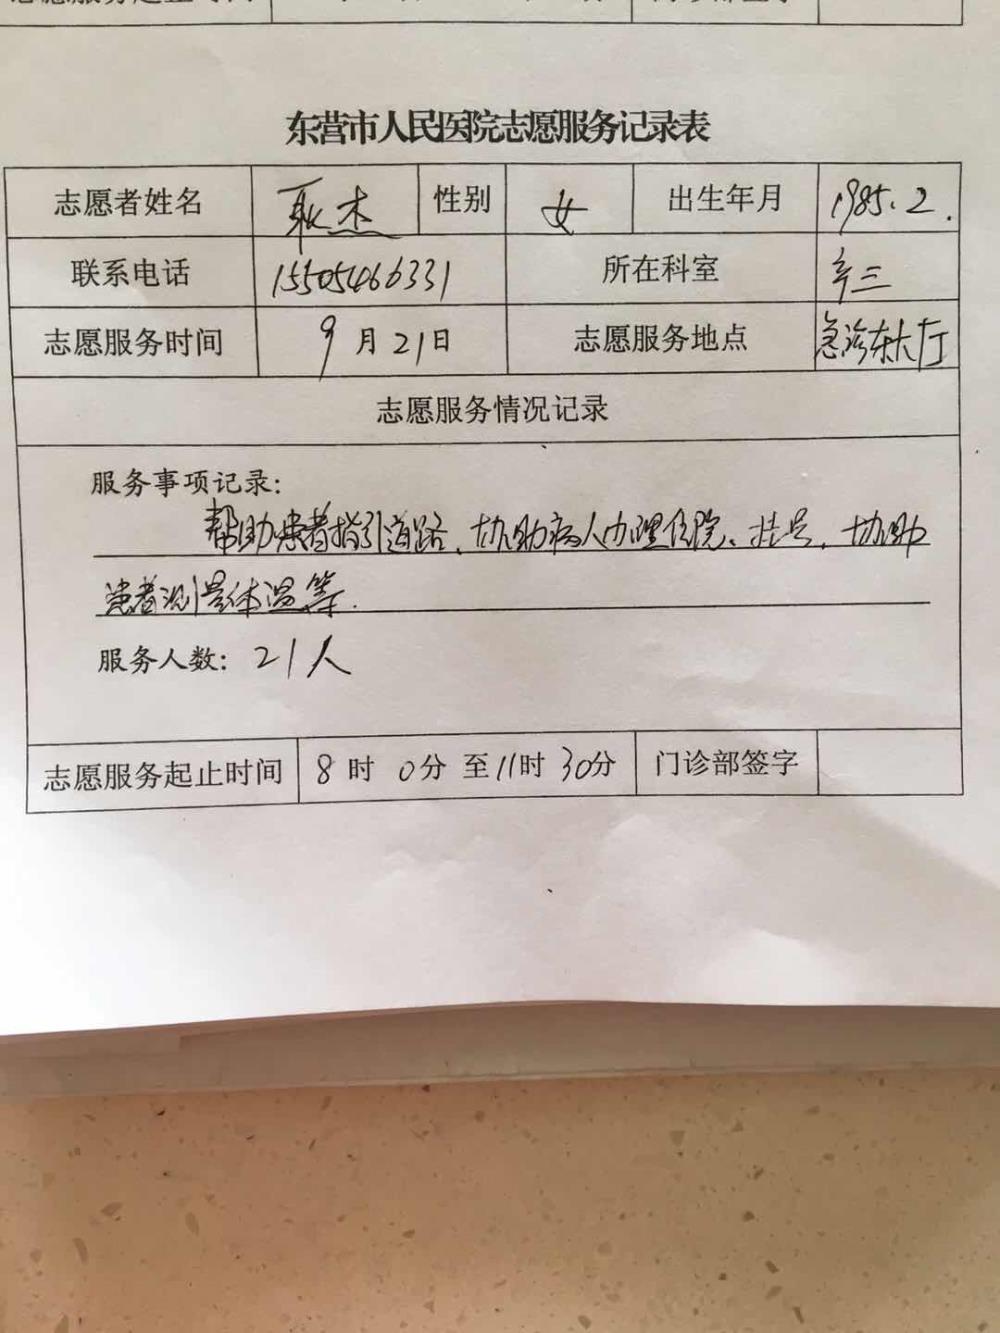 东营市人民医院志愿服务记录表
志愿者姓名 耿杰 性别 女 出生年月 1985.2.
联系电话 15505466331 所在科室 辛三
志愿服务时间 9月21日 志愿服务地点 急诊东大厅
志愿服务情况记录
服务事项记录:
帮助患者指引道路、协助病人办理住院、挂号,协助
患者测量体温等.
服务人数: 21人
志愿服务起止时间 8时0分至11时30分 门诊部签字